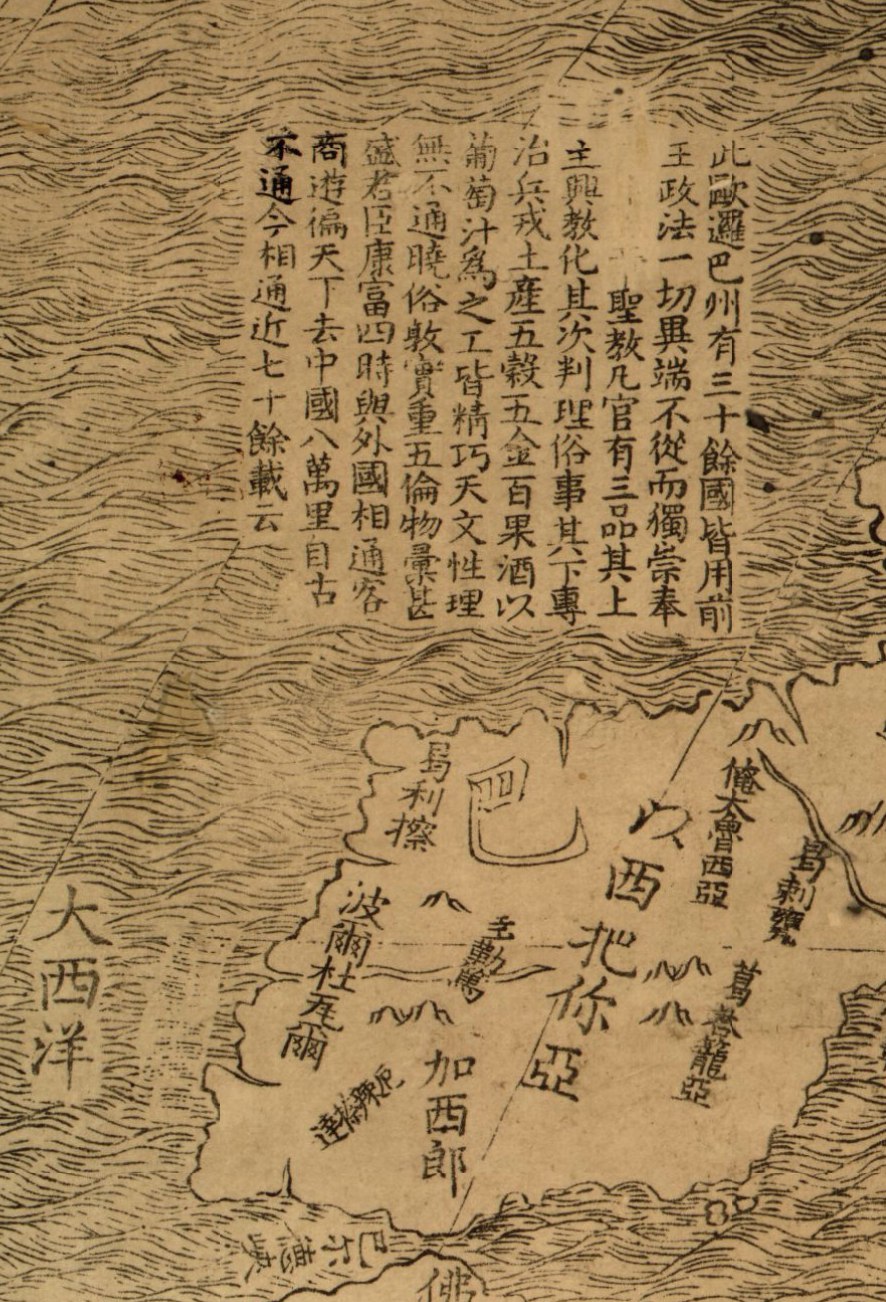 此歐邏巴州有三十餘國皆用前
王政法一切異端不從而獨崇奉
聖教凡官有三品其上
主興教化其次判理俗事其下專
治兵戎土產五穀五金百果酒以
葡萄汁爲之工皆精巧天文性理
無不通曉俗敦實重五倫物彙甚
盛君臣康富四時與外國相通客
商遊徧天下去中國八萬里自古
不通今相通近七十餘載云
俺大魯西亞
以西把你亞
巴
曷利擦
波爾杜瓦爾
加西郎
大西洋
佛